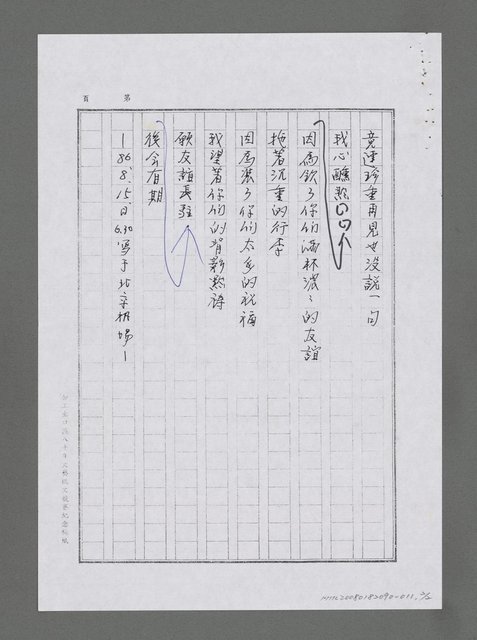 第　　頁
竟連珍重再見也沒說一句
我心醺默
因為飲了你們滿杯濃濃的友誼
拖著沉重的行李
因為裝了你們太多的祝福
我望著你們的背影默禱
願友誼長駐
後會有期
—86.8.15日6.30寫于北京機場—
NMTL20080180090-011, 2/2